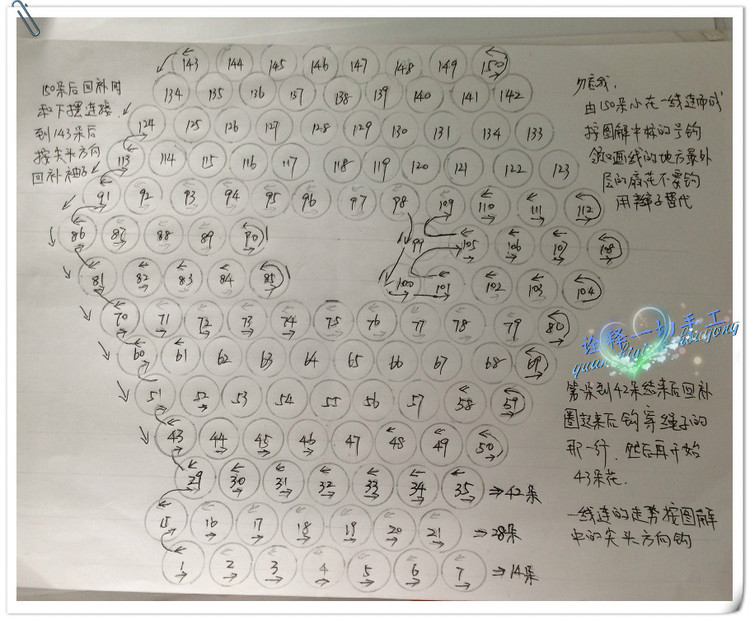 143 144 145 146 147 148 149 150
134 135 136 137 138 139 140 141 142
124 125 126 127 128 129 130 131 134 133
113 114 115 116 117 118 119 120 121 122 123
91 92 93 94 95 96 97 98 109 110 111 112
86 87 88 89 90 99 105 106 107 108
81 82 83 84 85 100 101 102 103 104
70 71 72 73 74 75 76 77 78 79 80
60 61 62 63 64 65 66 67 68 69
51 52 53 54 55 56 57 58 59
43 44 45 46 47 48 49 50
29 30 31 32 33 34 35 →42朵
15 16 17 18 19 20 21 →28朵
1 2 3 4 5 6 7 →14朵
150朵后回补时
和下摆连接
到143朵后
按尖头方向
回补袖子
勿忘我,
由150朵小花一线连而成
按图解中标的号钩
领口画线的地方最外
层的麻花不要钩
用辫子替代
诠释一切手工
第1朵到42朵结束后回补
圈起来后钩穿绳子的
那一行,然后再开始
43朵花.
一线连的走势按图解
中的尖头方向钩